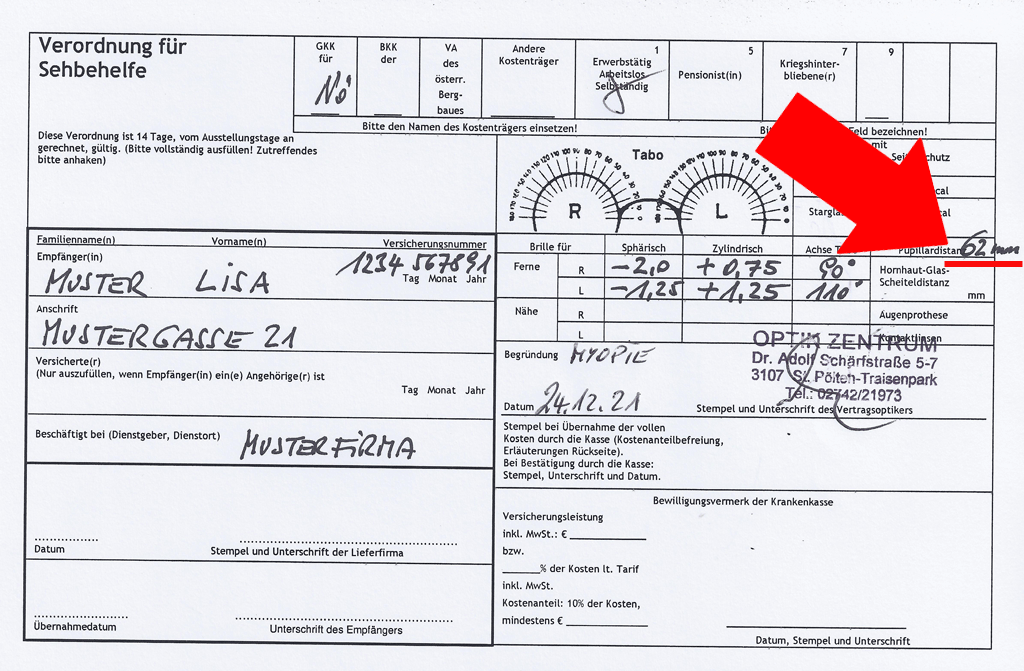 Verordnung für
Sehbehelfe
GKK
für
NÖ
BKK
der
VA
des
österr.
Berg-
baues
Andere
Kostenträger
1
Erwerbstätig
Arbeitslos
Selbständig
5
Pensionist(in)
7
Kriegshinter-
bliebene(r)
9
Bitte den Namen des Kostenträgers einsetzen!
Feld bezeichnen!
Diese Verordnung ist 14 Tage, vom Ausstellungstage an
gerechnet, gültig. (Bitte vollständig ausfüllen! Zutreffendes
bitte anhaken)
Tabo
R
L
mit
Familienname(n) Vorname(n) Versicherungsnummer
Empfänger(in) 1234 567891
MUSTER LISA Tag Monat Jahr
Anschrift
MUSTERGASSE 21
Versicherte(r)
(Nur auszufüllen, wenn Empfänger(in) ein(e) Angehörige(r) ist
Tag Monat Jahr
Beschäftigt bei (Dienstgeber, Dienstort) MUSTERFIRMA
Datum Stempel und Unterschrift der Lieferfirma
Übernahmedatum Unterschrift des Empfängers
Brille für Sphärisch Zylindrisch Achse Pupillardistanz 62 mm
Ferne R -2,0 +0,75 90°
L -1,25 +1,25 110°
Hornhaut-Glas-
Scheiteldistanz
mm
Nähe R Augenprothese
L Kontaktlinsen
Begründung MYOPIE
OPTIK ZENTRUM
Dr. Adolf Schärfstraße 5-7
3107 St. Pölten-Traisenpark
Tel.: 02742/21973
Datum 24.12.21 Stempel und Unterschrift des Vertragsoptikers
Stempel bei Übernahme der vollen
Kosten durch die Kasse (Kostenanteilbefreiung,
Erläuterungen Rückseite).
Bei Bestätigung durch die Kasse:
Stempel, Unterschrift und Datum.
Bewilligungsvermerk der Krankenkasse
Versicherungsleistung
inkl. MwSt.: €
bzw.
% der Kosten lt. Tarif
inkl. MwSt.
Kostenanteil: 10% der Kosten,
mindestens €
Datum, Stempel und Unterschrift